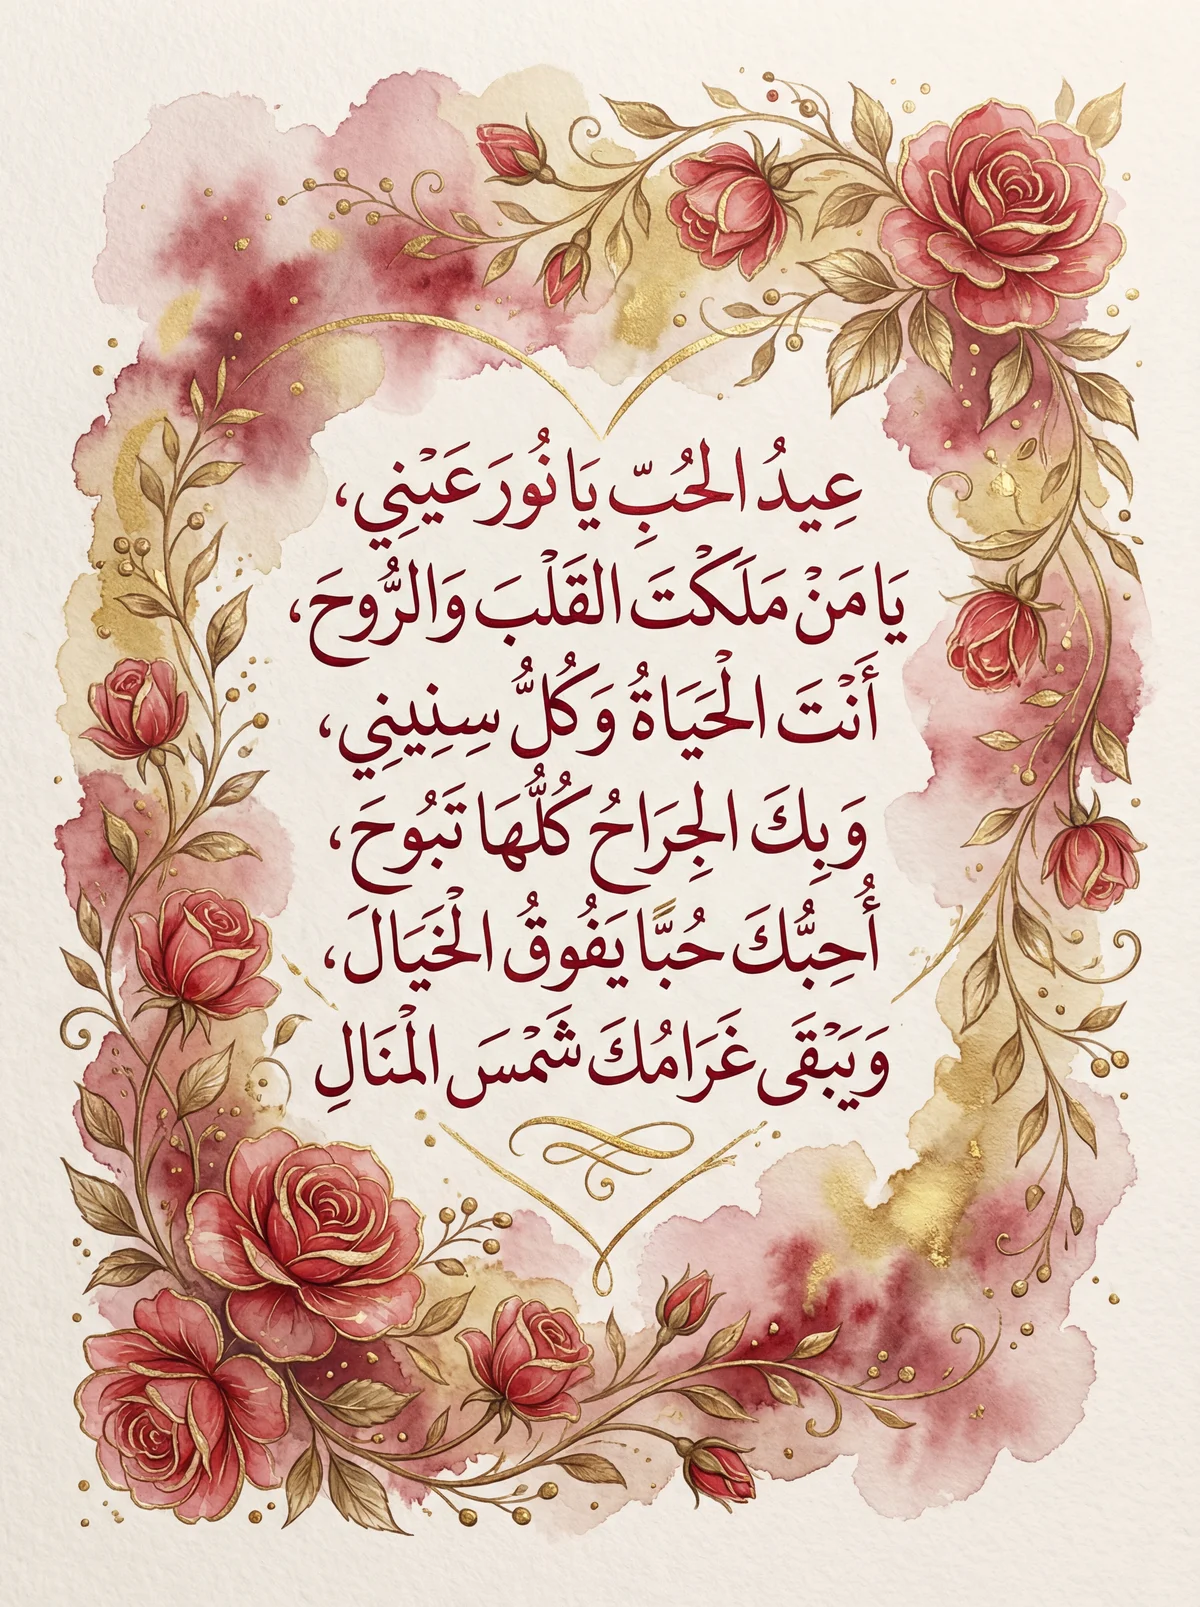 عِيدُ الحُبِّ يَا نُورَ عَيْنِي،
يَا مَنْ مَلَكْتَ القَلْبَ وَالرُّوحَ،
أَنْتَ الْحَيَاةُ وَكُلُّ سِنِينِي،
وَبِكَ الجِرَاحُ كُلُّهَا تَبُوحَ،
أُحِبُّكَ حُبًّا يَفُوقُ الْخَيَالَ،
وَيَبْقَى غَرَامُكَ شَمْسَ الْمَنَالِ